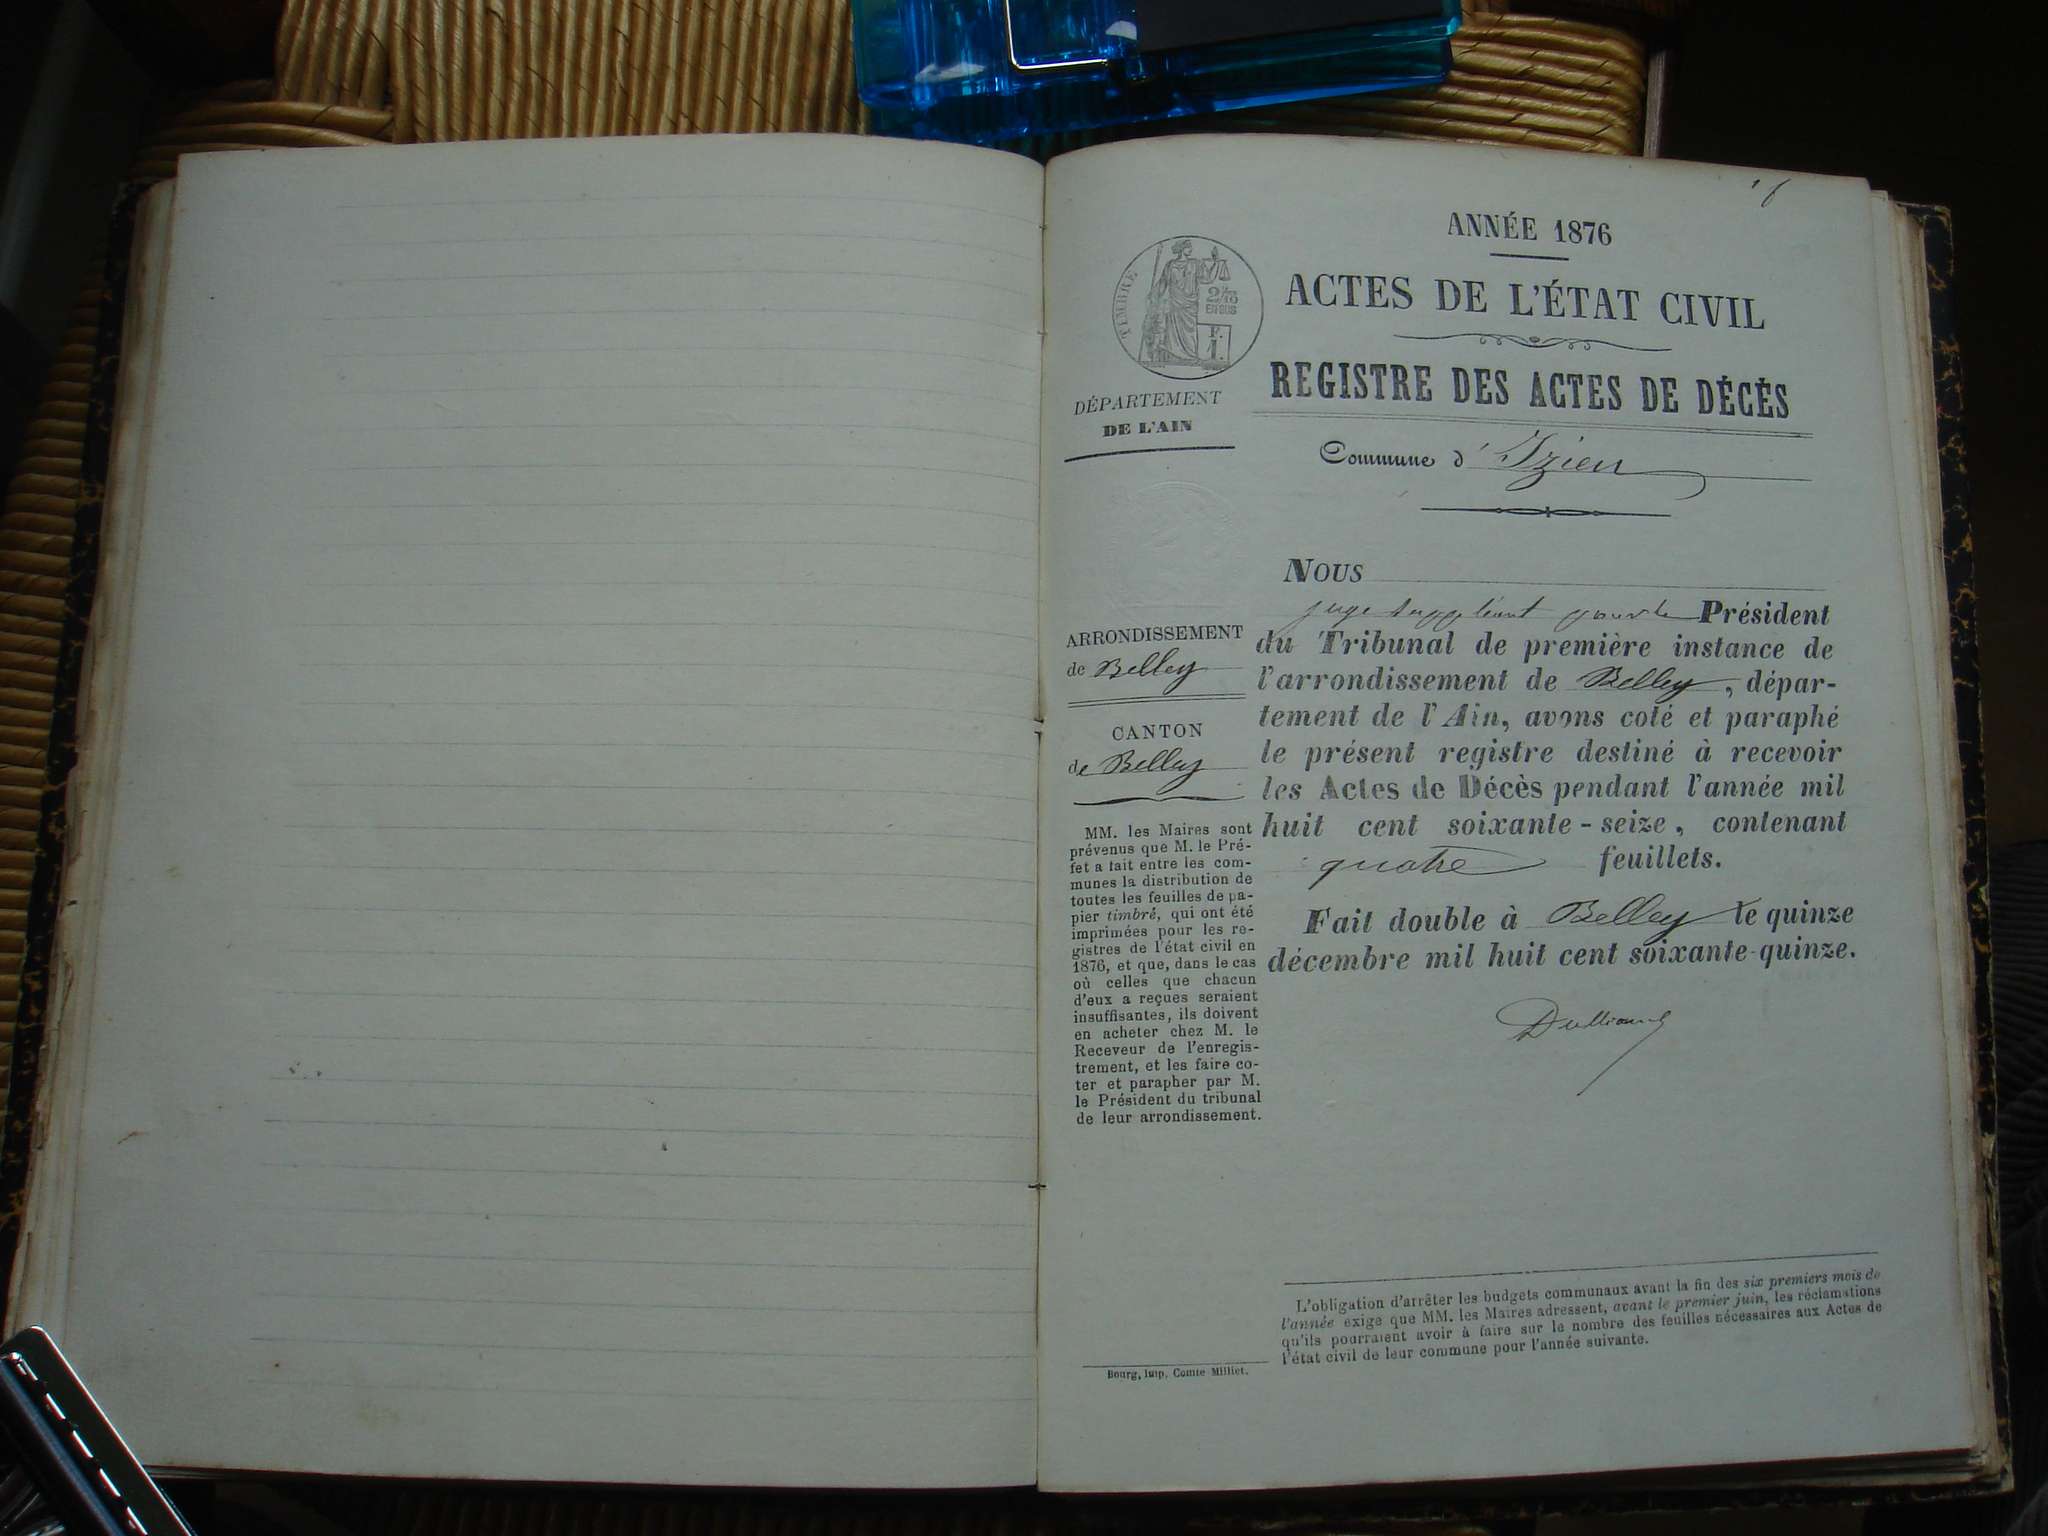 ANNÉE 1876
ACTES DE L'ÉTAT CIVIL
REGISTRE DES ACTES DE DÉCÈS
Commune d'Izieu
TIMBRE
2/10
EN SUS
F.
1.
DÉPARTEMENT
DE L'AIN
ARRONDISSEMENT
de Belley
CANTON
de Belley
MM. les Maires sont
prévenus que M. le Pré-
fet a fait entre les com-
munes la distribution de
toutes les feuilles de pa-
pier timbré, qui ont été
imprimées pour les re-
gistres de l'état civil en
1876, et que, dans le cas
où celles que chacun
d'eux a reçues seraient
insuffisantes, ils doivent
en acheter chez M. le
Receveur de l'enregis-
trement, et les faire co-
ter et parapher par M.
le Président du tribunal
de leur arrondissement.
Bourg, Imp. Comte Milliet.
NOUS
juge suppléant pour le Président
du Tribunal de première instance de
l'arrondissement de Belley, dépar-
tement de l'Ain, avons coté et paraphé
le présent registre destiné à recevoir
les Actes de Décès pendant l'année mil
huit cent soixante-seize, contenant
quatre feuillets.
Fait double à Belley le quinze
décembre mil huit cent soixante-quinze.
L'obligation d'arrêter les budgets communaux avant la fin des six premiers mois de
l'année exige que MM. les Maires adressent, avant le premier juin, les réclamations
qu'ils pourraient avoir à faire sur le nombre des feuilles nécessaires aux Actes de
l'état civil de leur commune pour l'année suivante.